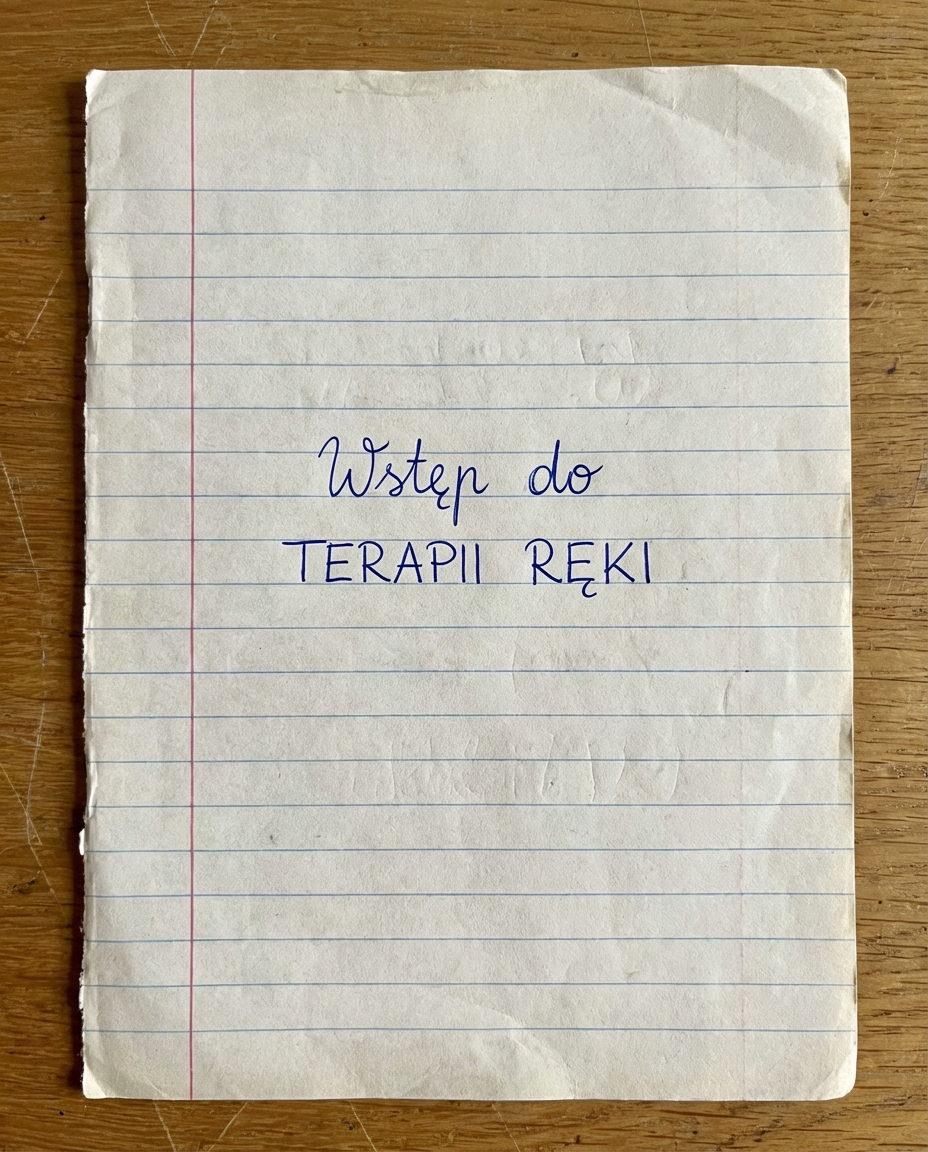 Wstęp do
TERAPII RĘKI